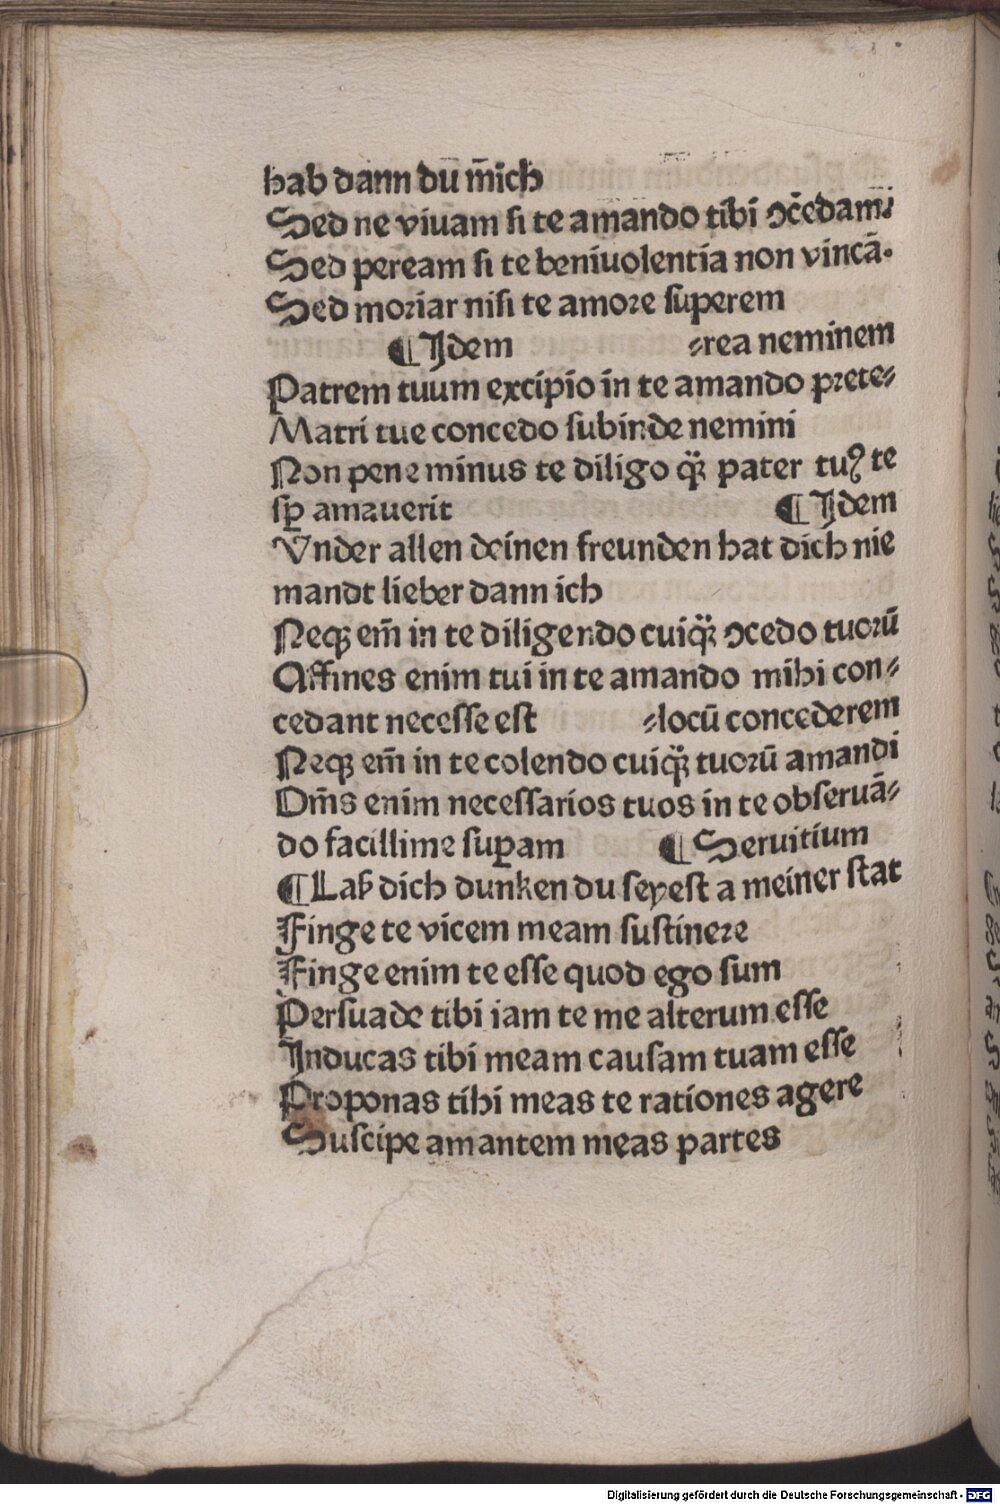 hab dann du m̄ich
Sed ne viuam ſi te amando tibi ↄc̄edam.
Sed peream ſi te beniuolentia non vincā.
Sed moꝛiar niſi te amoꝛe ſuperem
¶ Idem ⸗rea neminem
Patrem tuum excipio in te amando pꝛete⸗
Matri tue concedo ſubinde nemini
Non pene minus te diligo qr̄ pater tuꝫ te
ſꝑ amauerit ¶ Idem
Vnder allen deinen freunden hat dich nie
mandt lieber dann ich
Neqꝫ em̄ in te diligendo cuiqr̄ ↄcedo tuoꝛū
Affines enim tui in te amando mihi con⸗
cedant neceſſe eſt ⸗locū concederem
Neqꝫ em̄ in te colendo cuiqr̄ tuoꝛū amandi
Om̄s enim neceſſarios tuos in te obſeruā⸗
do facillime ſuꝑam ¶ Seruitium
¶ Laß dich dunken du ſeyeſt a meiner ſtat
Finge te vicem meam ſuſtinere
Finge enim te eſſe quod ego ſum
Perſuade tibi iam te me alterum eſſe
Inducas tibi meam cauſam tuam eſſe
Proponas tibi meas te rationes agere
Suſcipe amantem meas partes
Digitalisierung gefördert durch die Deutsche Forschungsgemeinschaft - DFG